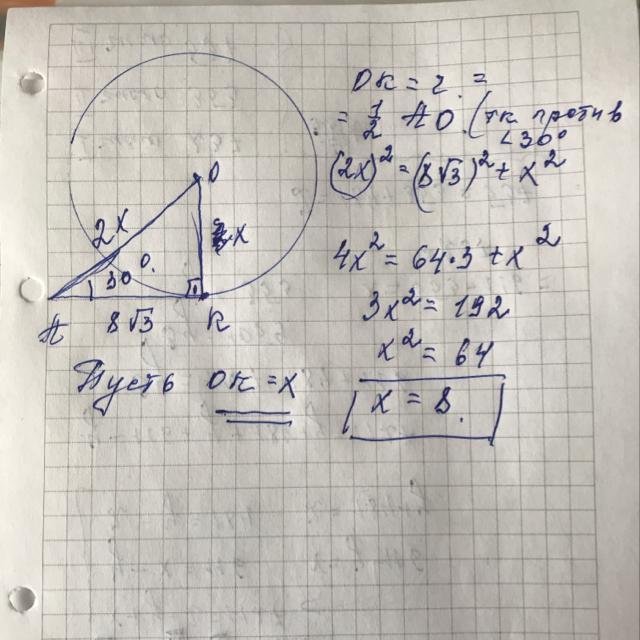 O
2x
x
30°
A
8√3
K
Пусть OK = x
OK = r =
= 1/2 AO (тк против
∠30°
(2x)² = (8√3)² + x²
4x² = 64·3 + x²
3x² = 192
x² = 64
x = 8.